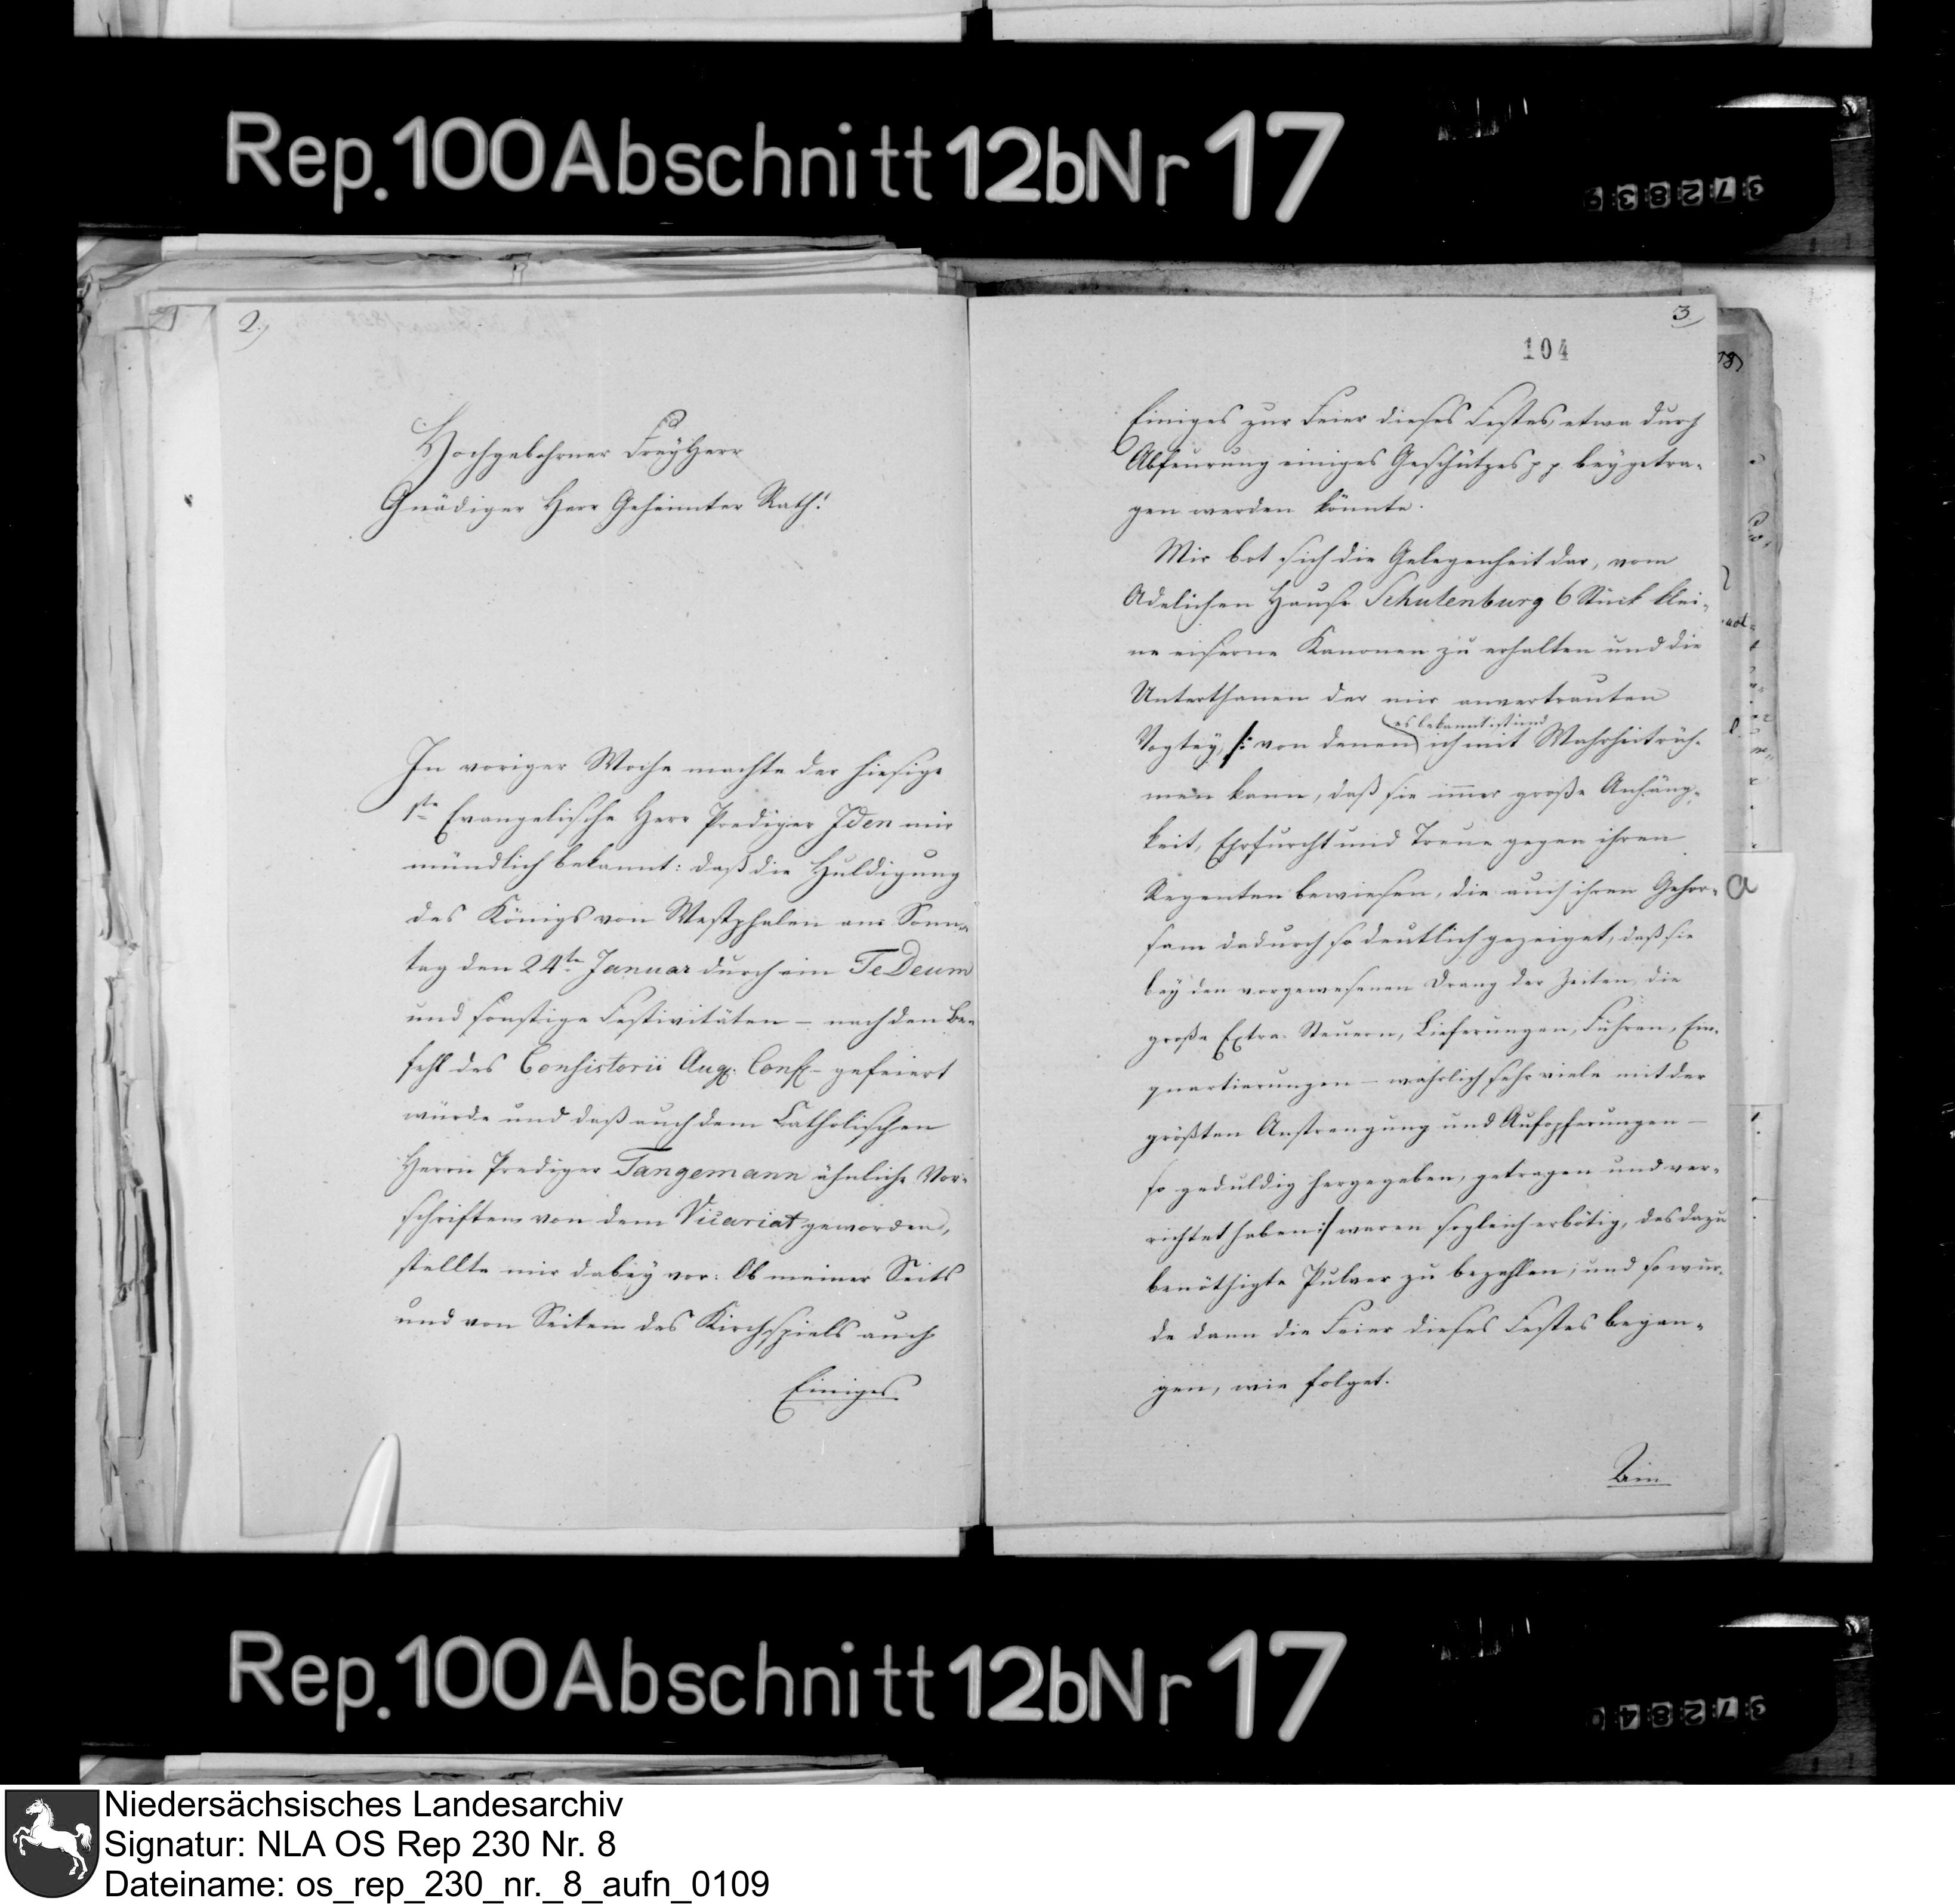 Rep. 100 Abschnitt 12b Nr 17
372839
2.)
Hochgebohrner FreyHerr
Gnädiger Herr Geheimter Rath!
In voriger Woche machte der hiesige
1ste Evangelische Herr Prediger Iden mir
mündlich bekannt: daß die Huldigung
des Königs von Westphalen am Sonn-
tag den 24ten Januar durch ein Te Deum
und sonstige Festivitäten – nach den Be-
fehl des Consistorii Aug. Conf. – gefeiert
würde und daß auch dem Catholischen
Herrn Prediger Tangemann ähnliche Vor-
schriften von dem Vicariat geworden,
stellte mir dabey vor: Ob meiner Seits
und von Seiten des Kirchspiels auch
Einiges
3
104
Einiges zur Feier dieses Festes, etwa durch
Abfeurung einiges Geschützes p p. beygetra-
gen werden könnte.
Mir bot sich die Gelegenheit dar, vom
Adelichen Hause Schulenburg 6 Stück klei-
ne eiserne Kanonen zu erhalten und die
Unterthanen der mir anvertrauten
es bekannt ist und
Vogtey, /: von denen ich mit Wahrheit rüh-
men kann, daß sie immer große Anhäng-
keit, Ehrfurcht und Treue gegen ihren
Regenten bewiesen, die auch ihren Gehor-
sam dadurch so deutlich gezeiget, daß sie
bey den vorgewesenen Drang der Zeiten, die
große Extra-Steuern, Lieferungen, Fuhren, Ein-
quartierungen – wahrlich sehr viele mit der
größten Anstrengung und Aufopferungen –
so geduldig hergegeben, getragen und ver-
richtet haben :/ waren sogleich erbötig, das dazu
benöthigte Pulver zu bezahlen; und so wur-
de dann die Feier dieses Festes began-
gen, wie folget.
Bei
Rep. 100 Abschnitt 12b Nr 17
372840
Niedersächsisches Landesarchiv
Signatur: NLA OS Rep 230 Nr. 8
Dateiname: os_rep_230_nr._8_aufn_0109